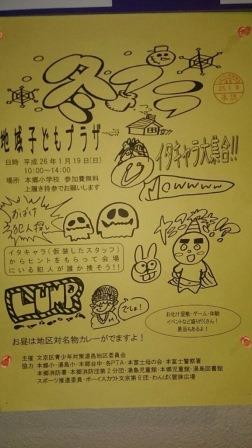 冬
地域子どもプラザ
日時 平成26年1月19日(日)
10:00～14:00
場所 本郷小学校 参加費無料
上履き持参でお願いします
イタキャラ大集合!!
Mowwww
おばけ
犯人探し
イタキャラ(仮装したスタッフ)
からヒントをもらって会場
にいる犯人が誰か捜そう!!
でしょ!
お化け屋敷・ゲーム・体験
イベントなど盛りだくさん!
景品もあるよ!
お昼は地区対名物カレーがでますよ!
主催 文京区青少年対策湯島地区委員会
協力 本郷小・湯島小・本郷台中・各PTA・本富士母の会・本富士警察署
本郷消防署・本郷消防団第2分団・湯島児童館・本郷児童館・湯島図書館
スポーツ推進委員・ボーイスカウト文京第6団・わんぱく響旅広場